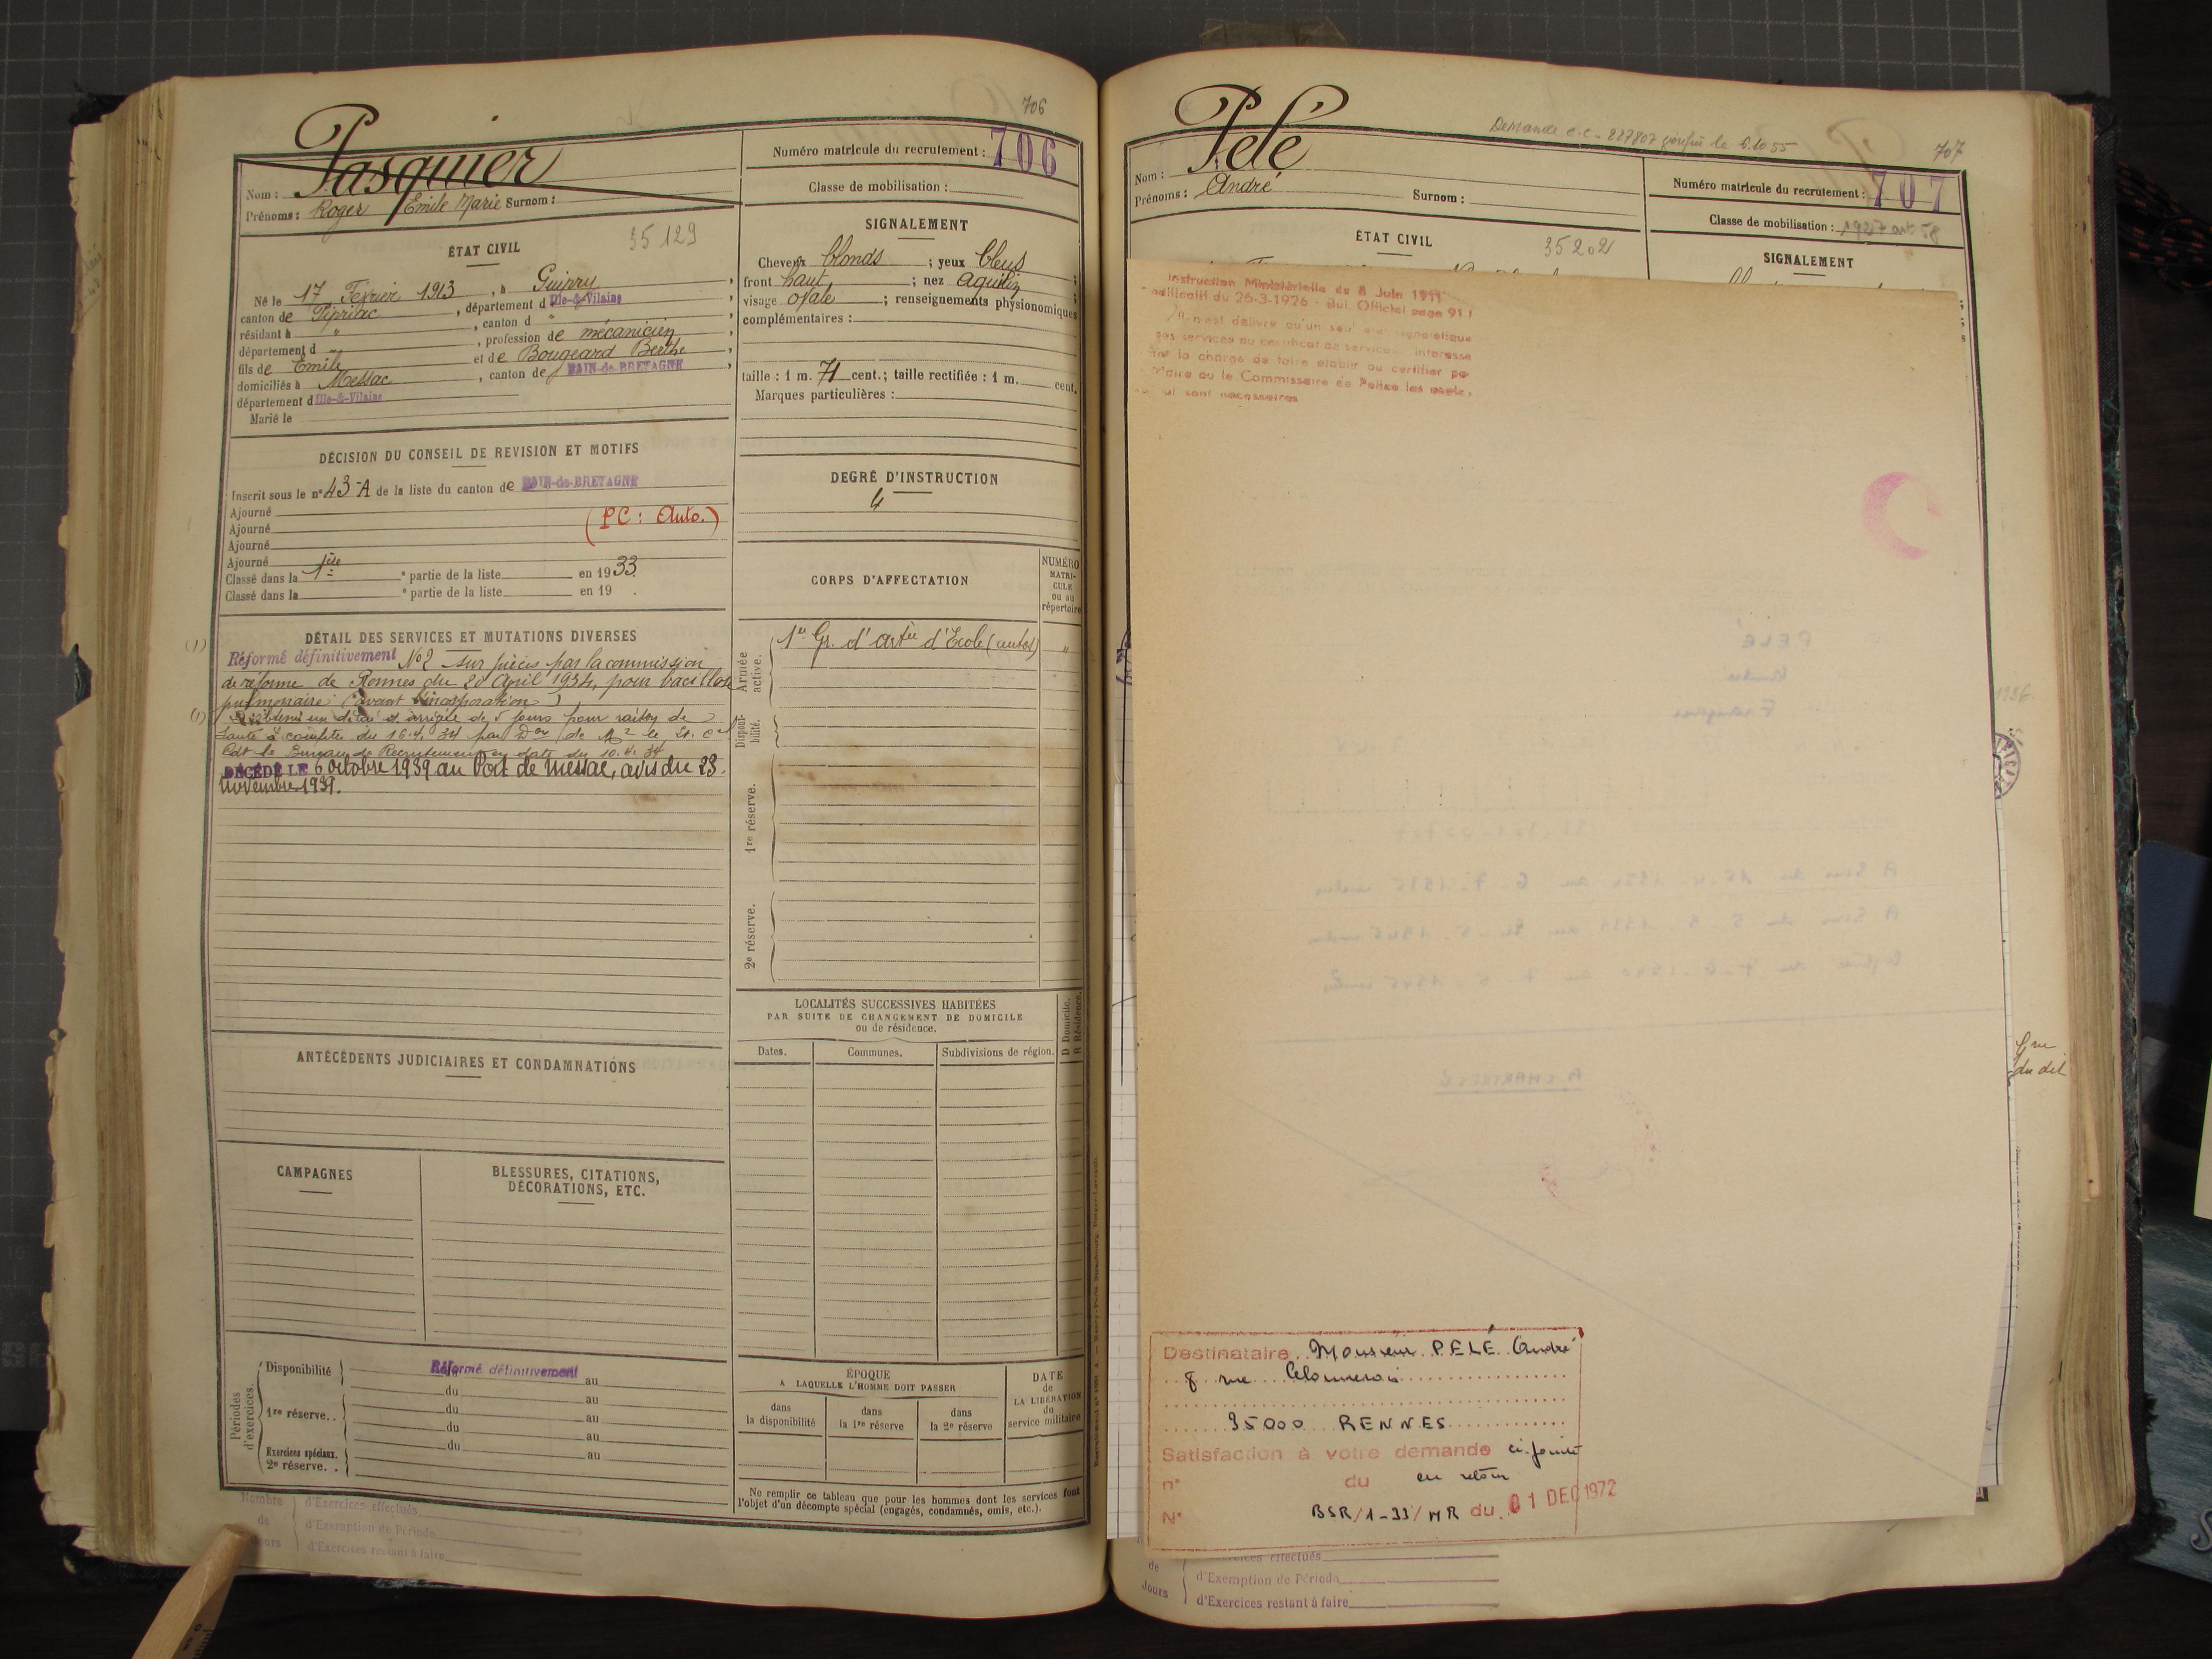 706
Pasquier
Nom :
Prénoms : Roger Emile Marie Surnom :
Numéro matricule du recrutement : 706
Classe de mobilisation :
ÉTAT CIVIL
35129
Né le 17 Février 1913, à Guipry,
canton de Pipriac, département d Ille-&-Vilaine
résidant à ", canton d ",
département d ", profession de mécanicien
fils de Emile et de Bougeard Berthe,
domiciliés à Messac, canton de BAIN-de-BRETAGNE,
département d Ille-&-Vilaine
Marié le
SIGNALEMENT
Cheveux blonds ; yeux bleus ;
front haut ; nez aquilin ;
visage ovale ; renseignements physionomiques
complémentaires :
taille : 1 m. 71 cent.; taille rectifiée : 1 m. cent.
Marques particulières :
DÉCISION DU CONSEIL DE REVISION ET MOTIFS
Inscrit sous le n° 43-A de la liste du canton de BAIN-de-BRETAGNE
Ajourné
(PC : Auto.)
Ajourné
Ajourné
Ajourné
Classé dans la 1ère ° partie de la liste en 1933.
Classé dans la ° partie de la liste en 19 .
DEGRÉ D'INSTRUCTION
4
CORPS D'AFFECTATION
NUMÉRO
MATRI-
CULE
ou au
répertoire
Armée
active.
1er Gr. d'artie d'Ecole (autos) "
Disponi-
bilité.
1re réserve.
2e réserve.
DÉTAIL DES SERVICES ET MUTATIONS DIVERSES
(1) Réformé définitivement No2 sur pièces par la commission
de réforme de Rennes du 20 April 1934, pour bacillose
pulmonaire (avant incorporation)
(1) obtenu un délai d'arrivée de 5 jours pour raison de
santé à compter du 16.4.34 par
Cdt le Bureau de Recrutement en date du 10.4.34
DÉCÉDÉ LE 6 octobre 1939 au Port de Messac, avis du 23
novembre 1939.
LOCALITÉS SUCCESSIVES HABITÉES
PAR SUITE DE CHANGEMENT DE DOMICILE
ou de résidence.
D Domicile.
R Résidence.
Dates. Communes. Subdivisions de région.
ANTÉCÉDENTS JUDICIAIRES ET CONDAMNATIONS
CAMPAGNES
BLESSURES, CITATIONS,
DÉCORATIONS, ETC.
Périodes
d'exercices.
Disponibilité Réformé définitivement au
du au
1re réserve.. du au
du au
Exercices spéciaux. du au
2e réserve. .
ÉPOQUE
A LAQUELLE L'HOMME DOIT PASSER
dans
la disponibilité
dans
la 1re réserve
dans
la 2e réserve
DATE
de
LA LIBÉRATION
du
service militaire
Ne remplir ce tableau que pour les hommes dont les services font
l'objet d'un décompte spécial (engagés, condamnés, omis, etc.).
Nombre
de
Jours
d'Exercices effectués
d'Exemption de Période
d'Exercices restant à faire
Demande c.c. 227807 le 6.10 55
707
Pelé
Nom :
Prénoms : André Surnom :
Numéro matricule du recrutement : 707
Classe de mobilisation :
ÉTAT CIVIL
35202
SIGNALEMENT
Instruction Ministérielle du 8 Juin 1911
modificatif du 26-3-1926 - Bul. Officiel page 911
Il n'est délivré qu'un seul état signalétique
des services ou certificat de services. Interesse
la charge de faire établir ou certifier par
Maire ou le Commissaire de Police les
ui sont necessaires
1936
rue
du dit
Destinataire Monsieur PELÉ André
8 rue
35000 RENNES
Satisfaction à votre demande ci-jointe
n° du en retour
N° BSR/1-33/MR du 01 DEC 1972
de
Jours
effectués
d'Exemption de Période
d'Exercices restant à faire